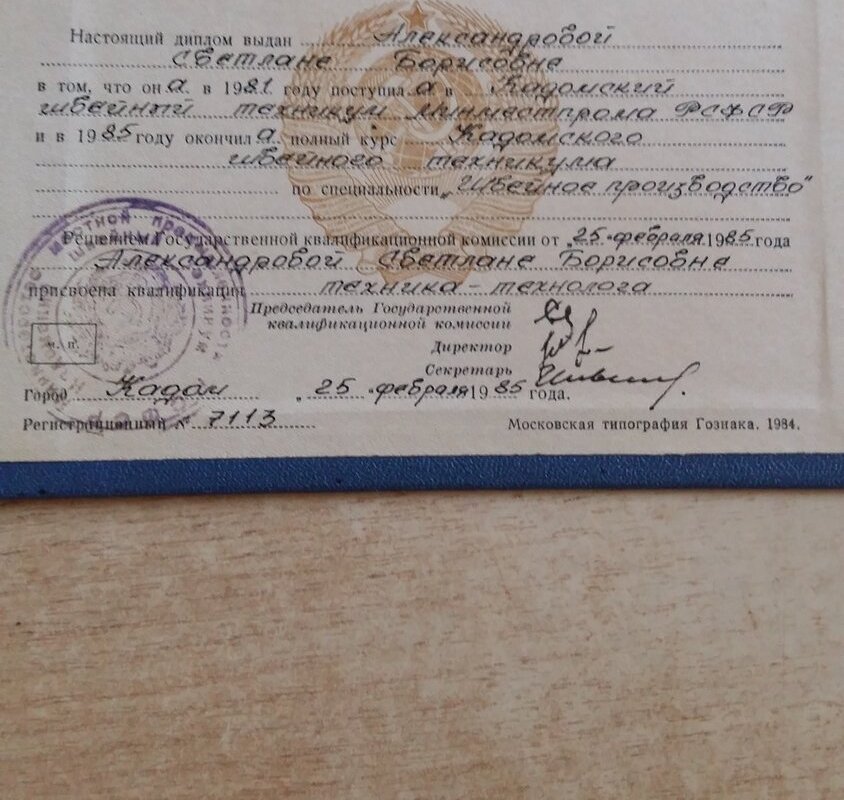 Настоящий диплом выдан Александровой
Светлане Борисовне
в том, что она в 1981 году поступила в Кадомский
швейный техникум Минместпрома РСФСР
и в 1985 году окончила полный курс Кадомского
швейного техникума
по специальности „Швейное производство"
Решением Государственной квалификационной комиссии от „25" февраля 1985 года
Александровой Светлане Борисовне
присвоена квалификация техника-технолога
Председатель Государственной
квалификационной комиссии
Директор
М. П.
Секретарь
Город Кадом „25" февраля 1985 года.
Регистрационный № 7113
Московская типография Гознака. 1984.